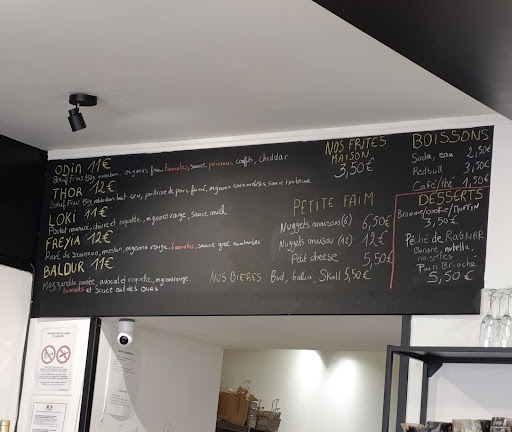 ODIN 11€
Bœuf frais 180g, oignons frais, tomates, sauce poivrons confits, cheddar
THOR 12€
Bœuf frais 180g, lait cru, poitrine de porc fumé, oignons caramélisés, sauce
LOKI 11€
Poulet mariné, chèvre et roquette, oignons rouge, sauce miel
FREYIA 12€
Pavé de saumon, mesclun, oignons rouge, tomates, sauce grec
BALDUR 11€
Mozzarella panée, avocat et roquette, oignon rouge,
tomates et sauce ail des ours
NOS FRITES
MAISON
3,50€
PETITE FAIM
Nuggets maison (6) 6,50€
Nuggets maison (12) 12€
Petit cheese 5,50€
NOS BIERES Bud, Skoll 5,50€
BOISSONS
Soda, eau 2,50€
Redbull 3,50€
Café/thé 1,50€
DESSERTS
Brownie/cookie/MUFFIN
3,50€
Pêché de RAGNAR
Banane, nutella,
noisettes
Pain Brioché
5,50€